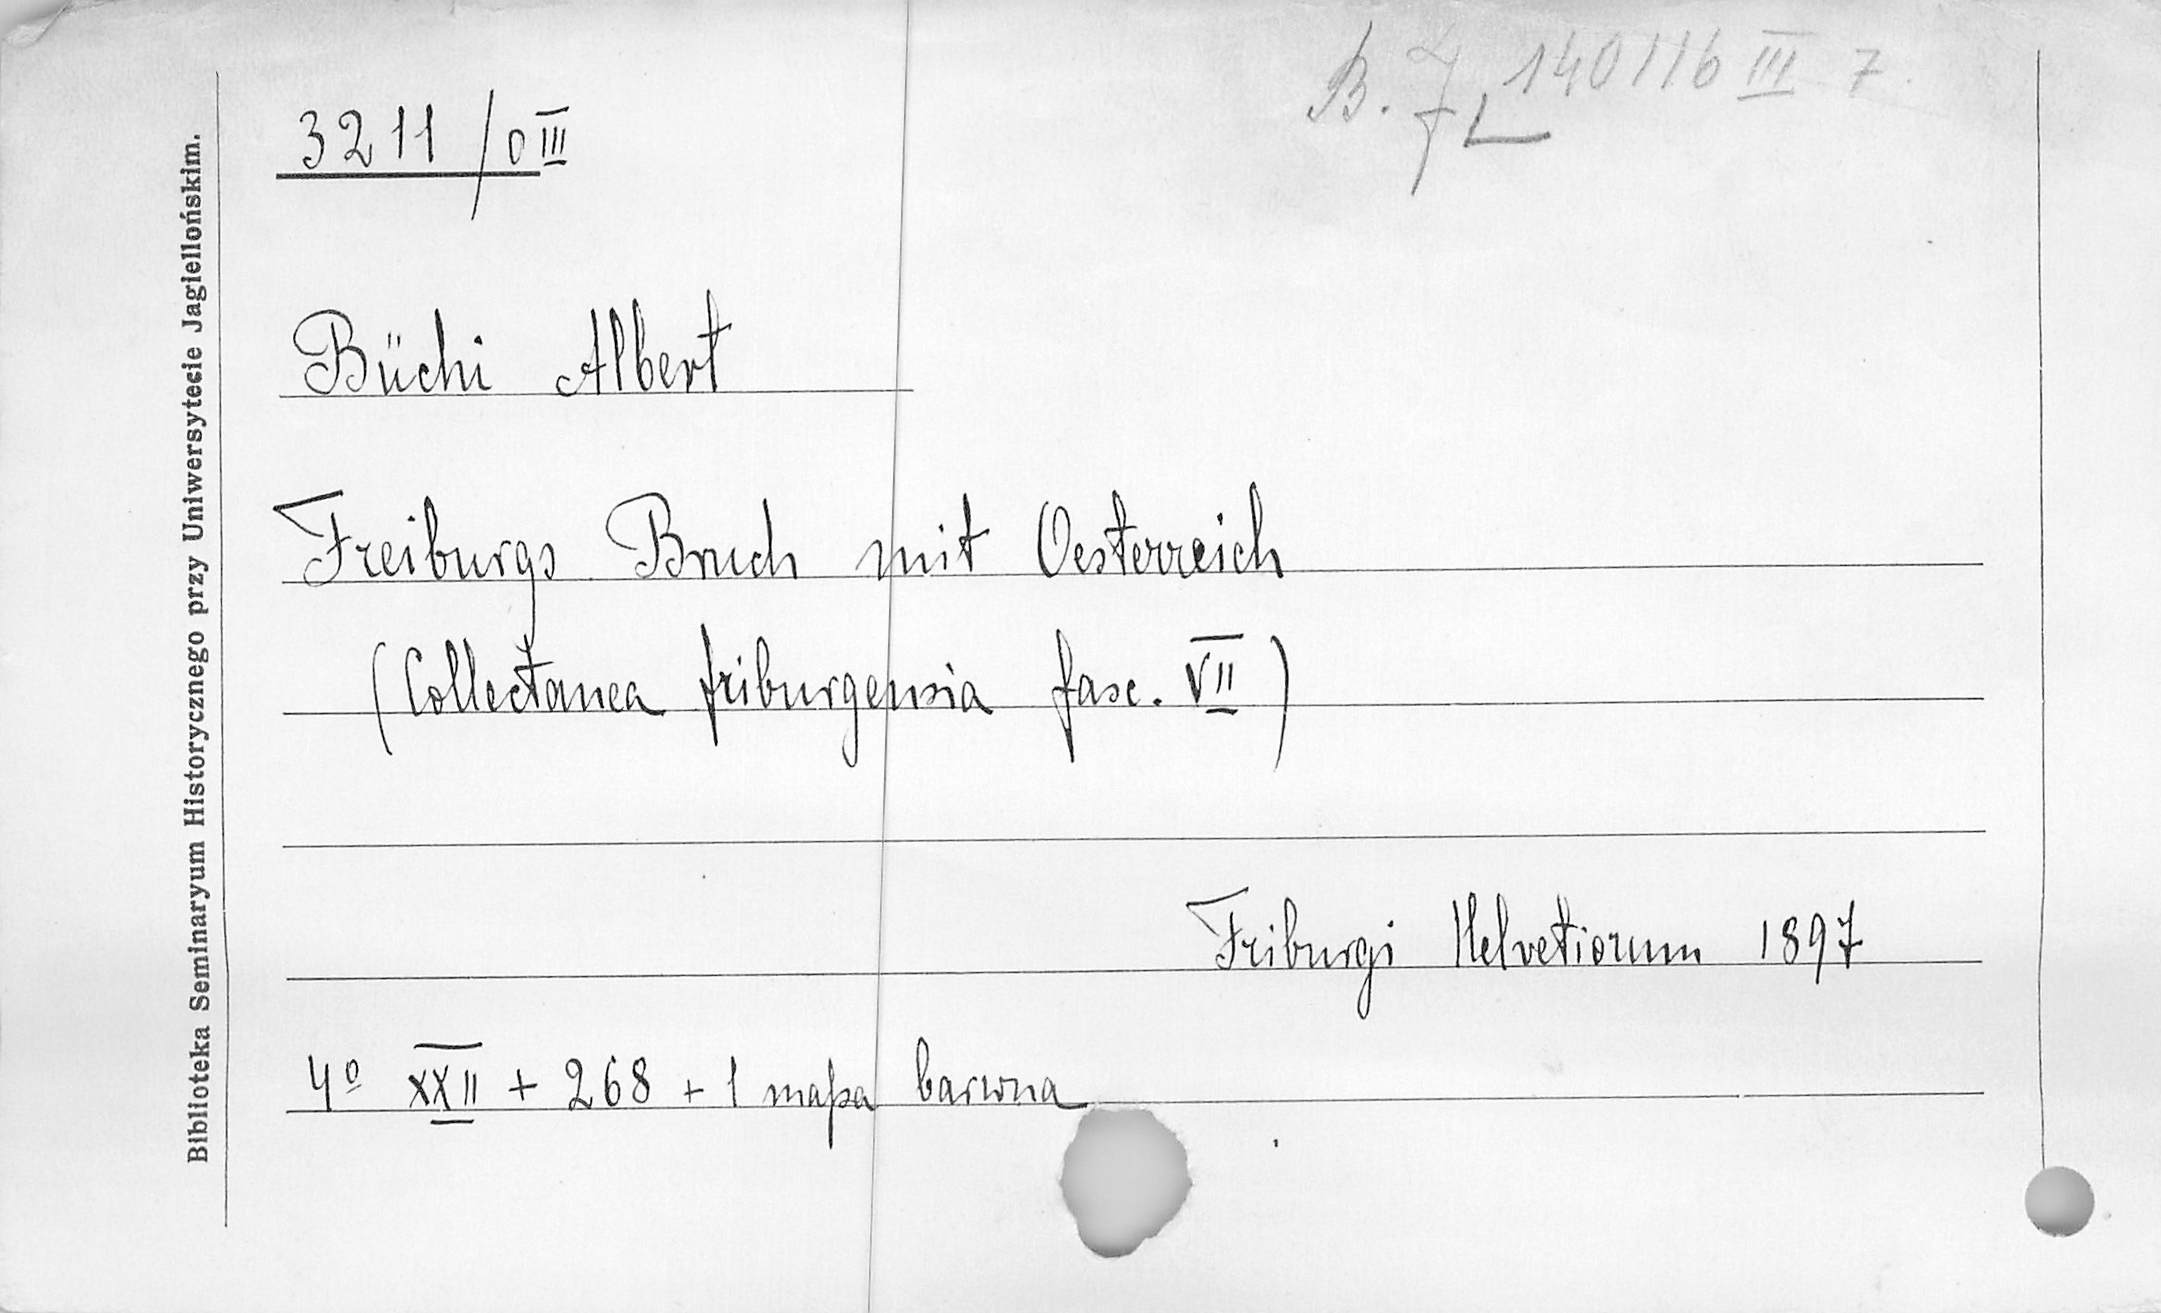 B. J. 140116 III 7.
3211/0 III
Büchi Albert
Freiburgs Bruch mit Oesterreich
(Collectanea friburgensia fasc. VII)
Friburgi Helvetiorum 1897
4º XXII + 268 + 1 mapa barwna
Biblioteka Seminaryum Historycznego przy Uniwersytecie Jagiellońskim.